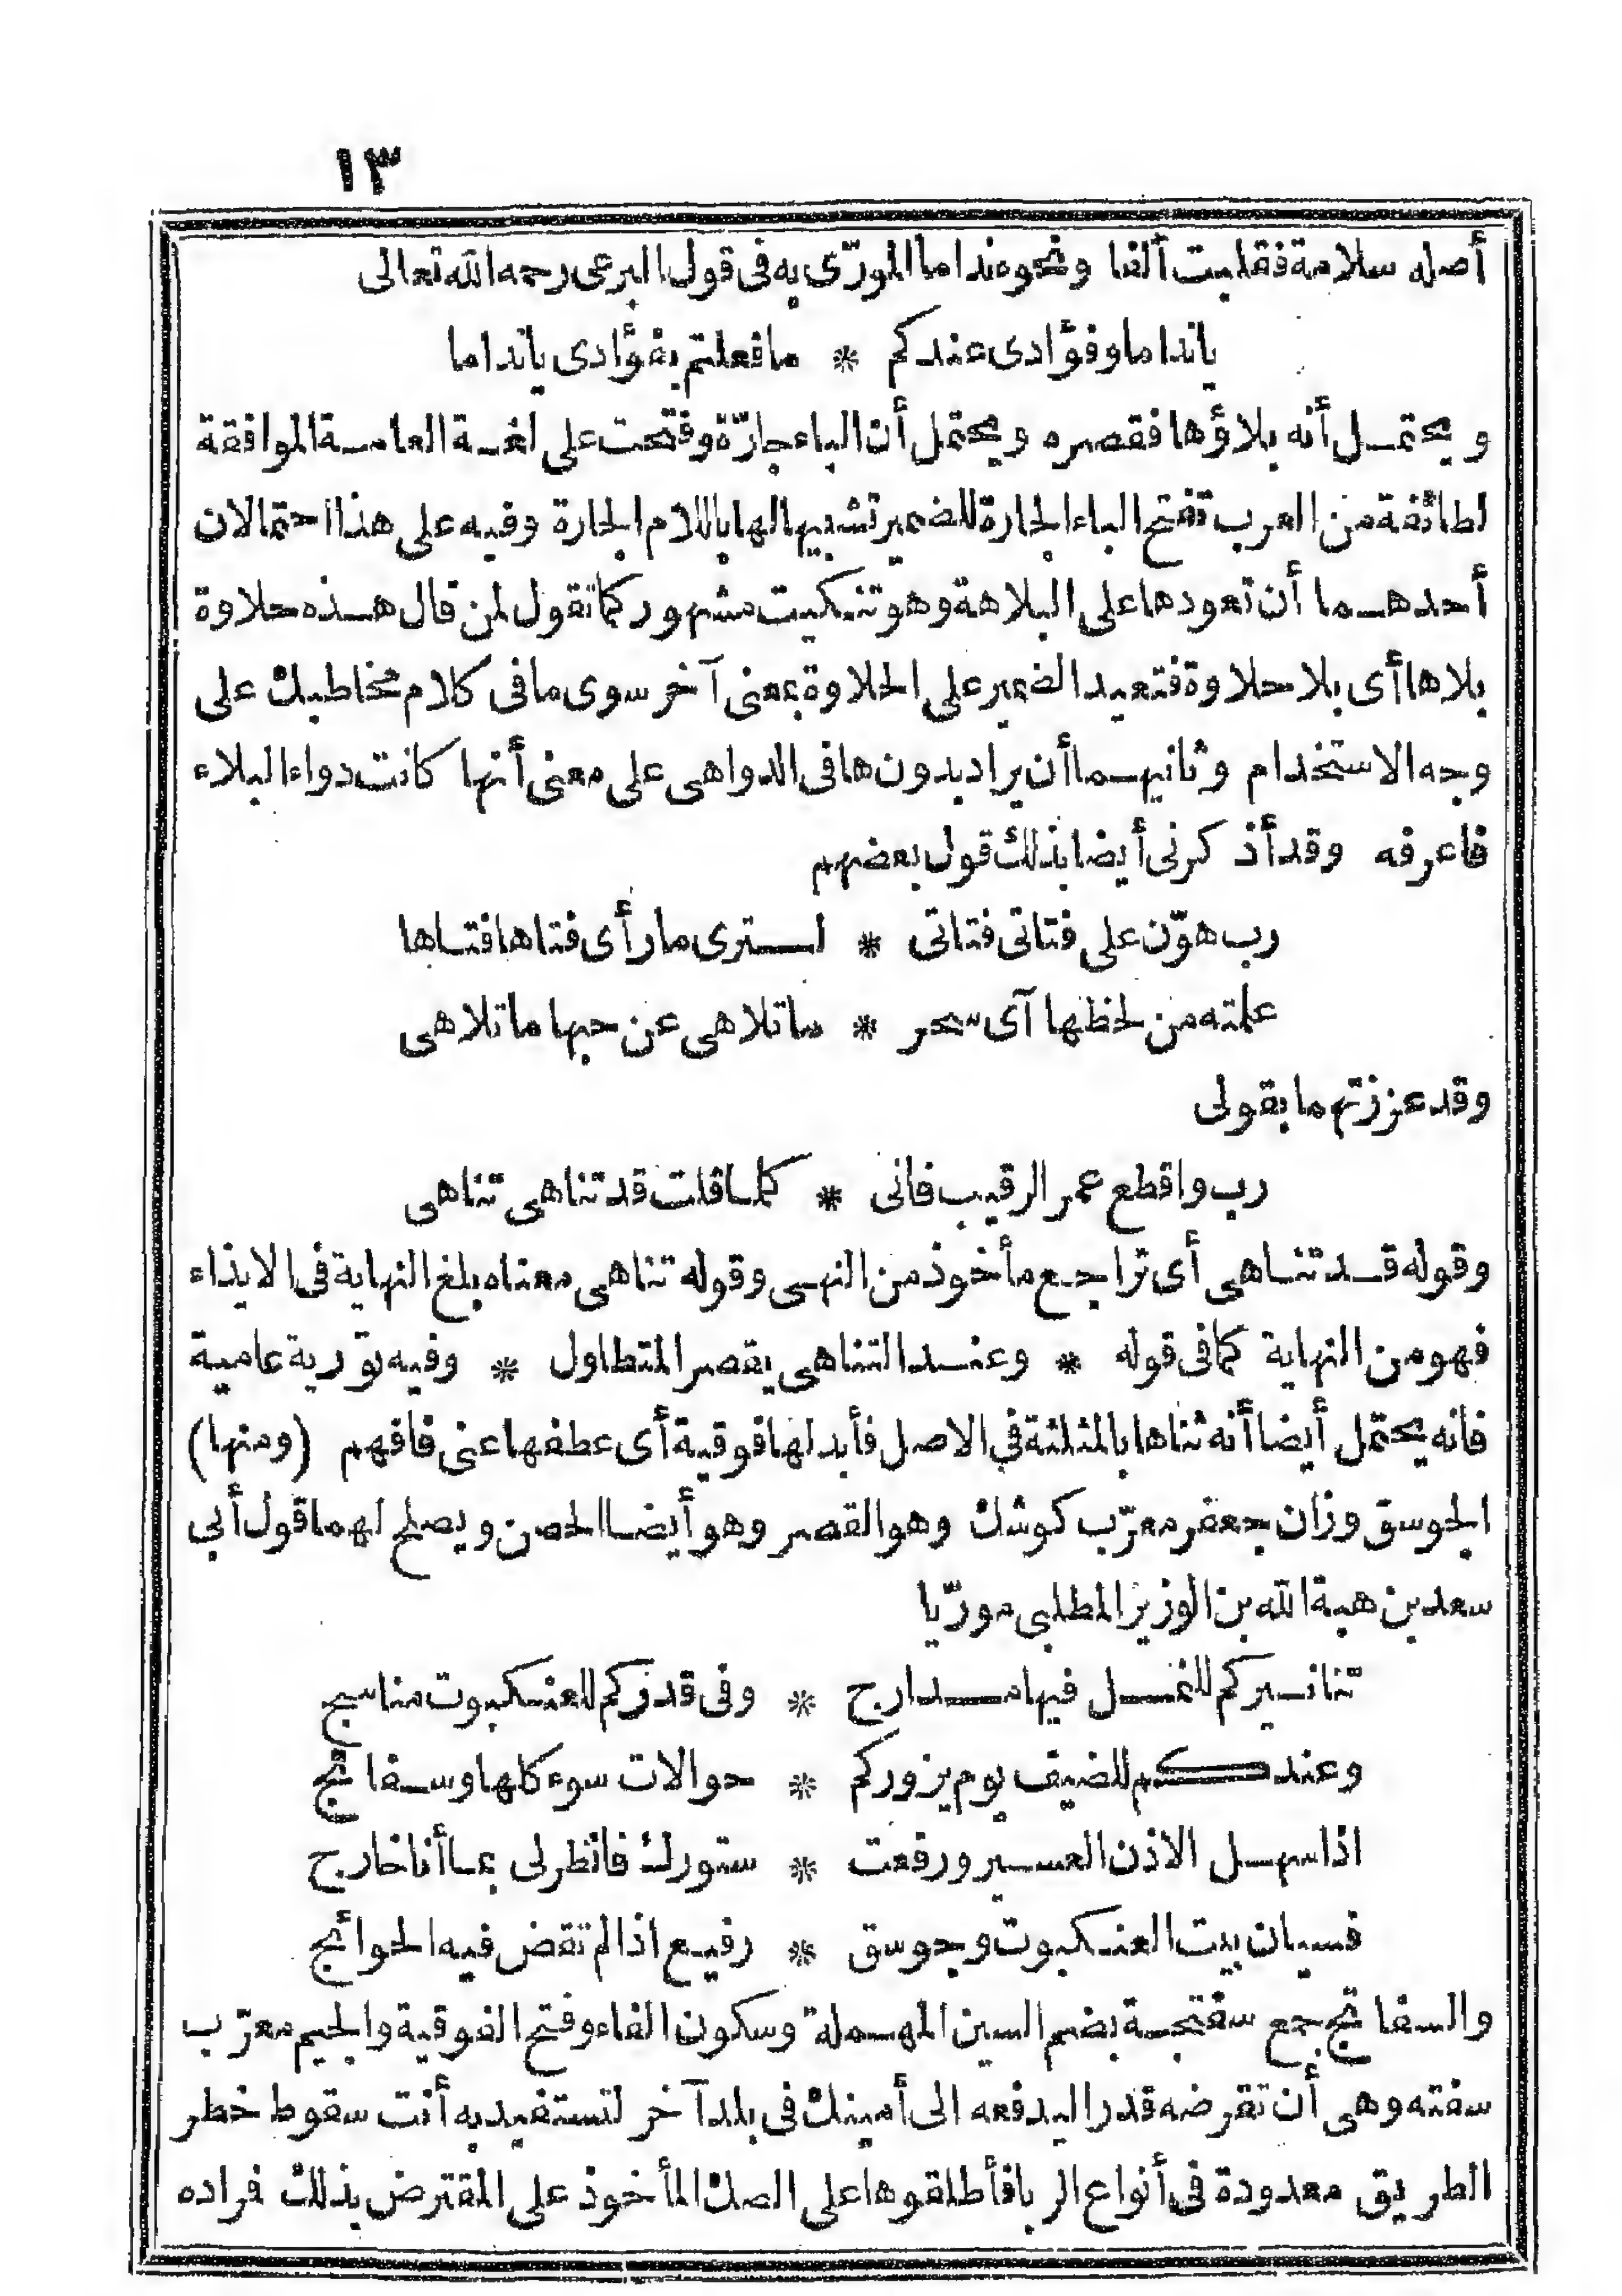 ١٣
أصله سلامة فقلبت ألفا ونحوه نداما المورّى به فى قول البرعى رحمه الله تعالى
ياندا ما وفؤادى عندكم * ما فعلتم بفؤادى ياندا ما
ويحتمل أنه بلاؤها فقصره ويحتمل أن الباء جارّة وفتحت على لغة العامة الموافقة
لطائفة من العرب تفتح الباء الجارة للضمير تشبيها لها باللام الجارة وفيه على هذا احتمالان
أحدهما أن تعود ها على البلاهة وهو تنكيت مشهور كما تقول لمن قال هذه حلاوة
بلاها أى بلا حلاوة فتعيد الضمير على الحلاوة بمعنى آخر سوى ما فى كلام مخاطبك على
وجه الاستخدام وثانيهما أن يراد بدون ها فى الدواهى على معنى أنها كانت دواء البلاء
فاعرفه وقد أذكرنى أيضا بذلك قول بعضهم
رب هوّن على فتاتى فتاتى * لسترى ما رأى فتاها فتاها
علمته من لحظها آى سحر * ما تلاهى عن حبها ما تلاهى
وقد عززتهما بقولى
رب واقطع عمر الرقيب فانى * كلما قلت قد تناهى تناهى
وقوله قد تناهى أى تراجع مأخوذ من النهى وقوله تناهى معناه بلغ النهاية فى الايذاء
فهو من النهاية كما فى قوله * وعند التناهى يقصر المتطاول * وفيه تورية عامية
فانه يحتمل أيضا أنه ثناها بالمثلثة في الاصل فأبدلها فوقية أى عطفها عنى فافهم (ومنها)
الجوسق وزان جعفر معرّب كوشك وهو القصر وهو أيضا الحصن ويصلح لهما قول أبي
سعد بن هبة الله بن الوزير المطلبى مورّيا
تنانيركم للنمل فيها مدارج * وفى قدركم للعنكبوت مناسج
وعندكم للضيف يوم يزوركم * حوالات سوء كلها وسفاتج
اذا سهل الاذن العسير ورفعت * ستورك فانظر لى بما أنا خارج
فسيان بيت العنكبوت وجوسق * رفيع اذا لم تقض فيه الحوائج
والسفاتج جمع سفتجة بضم السين المهملة وسكون الفاء وفتح الفوقية والجيم معرّب
سفته وهى أن تقرضه قدرا ليدفعه الى أمينك فى بلد آخر لتستفيد به أنت سقوط خطر
الطريق معدودة فى أنواع الربا فأطلقوها على الصك المأخوذ على المقترض بذلك فراده